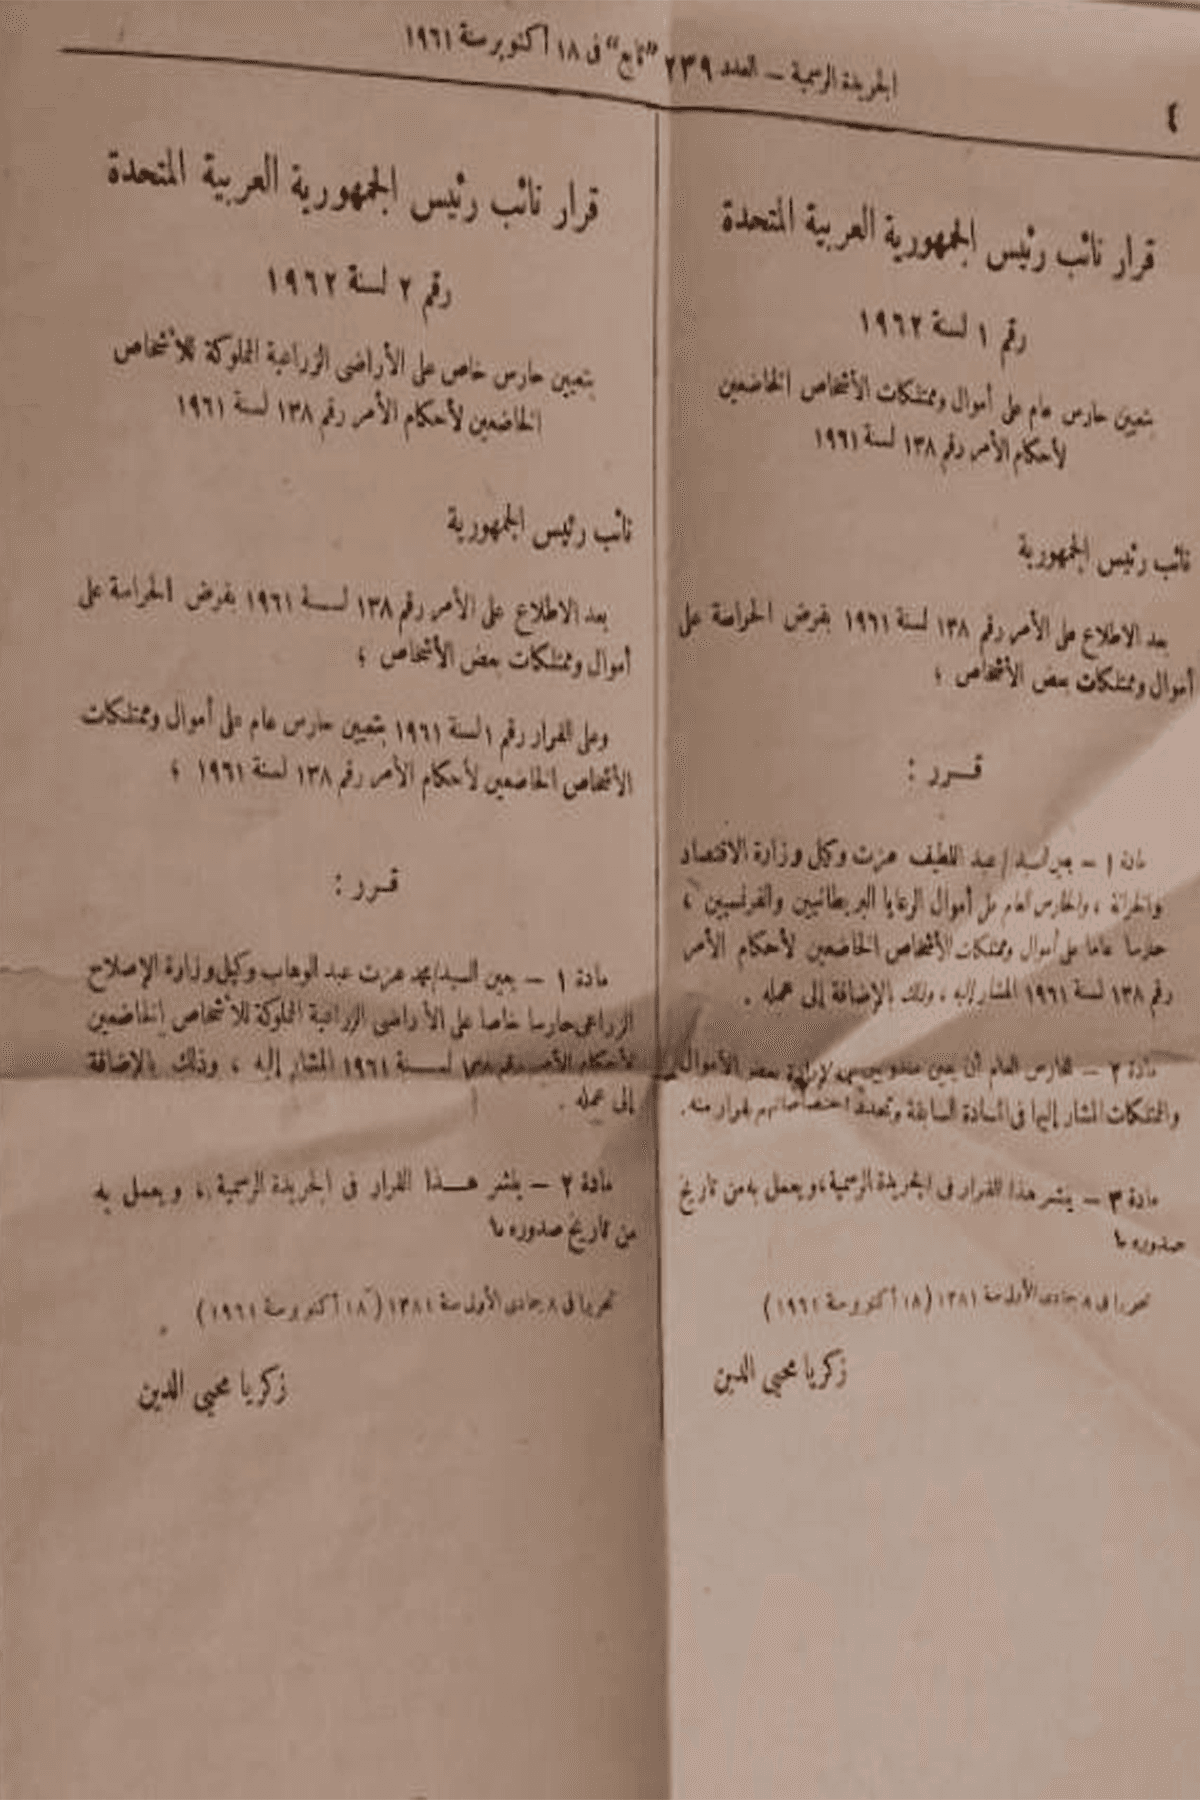 ٤
الجريدة الرسمية – العدد ٢٣٩ "تابع" فى ١٨ أكتوبر سنة ١٩٦١
قرار نائب رئيس الجمهورية العربية المتحدة
رقم ١ لسنة ١٩٦٢
بتعيين حارس عام على أموال وممتلكات الأشخاص الخاضعين
لأحكام الأمر رقم ١٣٨ لسنة ١٩٦١
نائب رئيس الجمهورية
بعد الاطلاع على الأمر رقم ١٣٨ لسنة ١٩٦١ بفرض الحراسة على
أموال وممتلكات بعض الأشخاص ؛
قـرر :
مادة ١ – يعين السيد/ عبد اللطيف عزت وكيل وزارة الاقتصاد
والخزانة ، والحارس العام على أموال الرعايا البريطانيين والفرنسيين ،
حارسا عاما على أموال وممتلكات الأشخاص الخاضعين لأحكام الأمر
رقم ١٣٨ لسنة ١٩٦١ المشار إليه ، وذلك بالإضافة إلى عمله .
مادة ٢ – للحارس العام أن يعين مندوبين لإدارة بعض الأموال
والممتلكات المشار إليها فى المادة السابقة وتحدد اختصاصاتهم بقرار منه.
مادة ٣ – ينشر هذا القرار فى الجريدة الرسمية، ويعمل به من تاريخ
صدوره ،
تحريرا فى ٨ جمادى الأولى سنة ١٣٨١ (١٨ أكتوبر سنة ١٩٦١)
زكريا محيى الدين
قرار نائب رئيس الجمهورية العربية المتحدة
رقم ٢ لسنة ١٩٦٢
بتعيين حارس خاص على الأراضى الزراعية المملوكة للأشخاص
الخاضعين لأحكام الأمر رقم ١٣٨ لسنة ١٩٦١
نائب رئيس الجمهورية
بعد الاطلاع على الأمر رقم ١٣٨ لسنة ١٩٦١ بفرض الحراسة على
أموال وممتلكات بعض الأشخاص ؛
وعلى القرار رقم ١ لسنة ١٩٦١ بتعيين حارس عام على أموال وممتلكات
الأشخاص الخاضعين لأحكام الأمر رقم ١٣٨ لسنة ١٩٦١ ؛
قـرر :
مادة ١ – يعين السيد/ محمد عزت عبد الوهاب وكيل وزارة الإصلاح
الزراعى حارسا خاصا على الأراضى الزراعية المملوكة للأشخاص الخاضعين
لأحكام الأمر رقم ١٣٨ لسنة ١٩٦١ المشار إليه ، وذلك بالإضافة
إلى عمله .
مادة ٢ – ينشر هذا القرار فى الجريدة الرسمية ، ويعمل به
من تاريخ صدوره ،
تحريرا فى ٨ جمادى الأولى سنة ١٣٨١ (١٨ أكتوبر سنة ١٩٦١)
زكريا محيى الدين